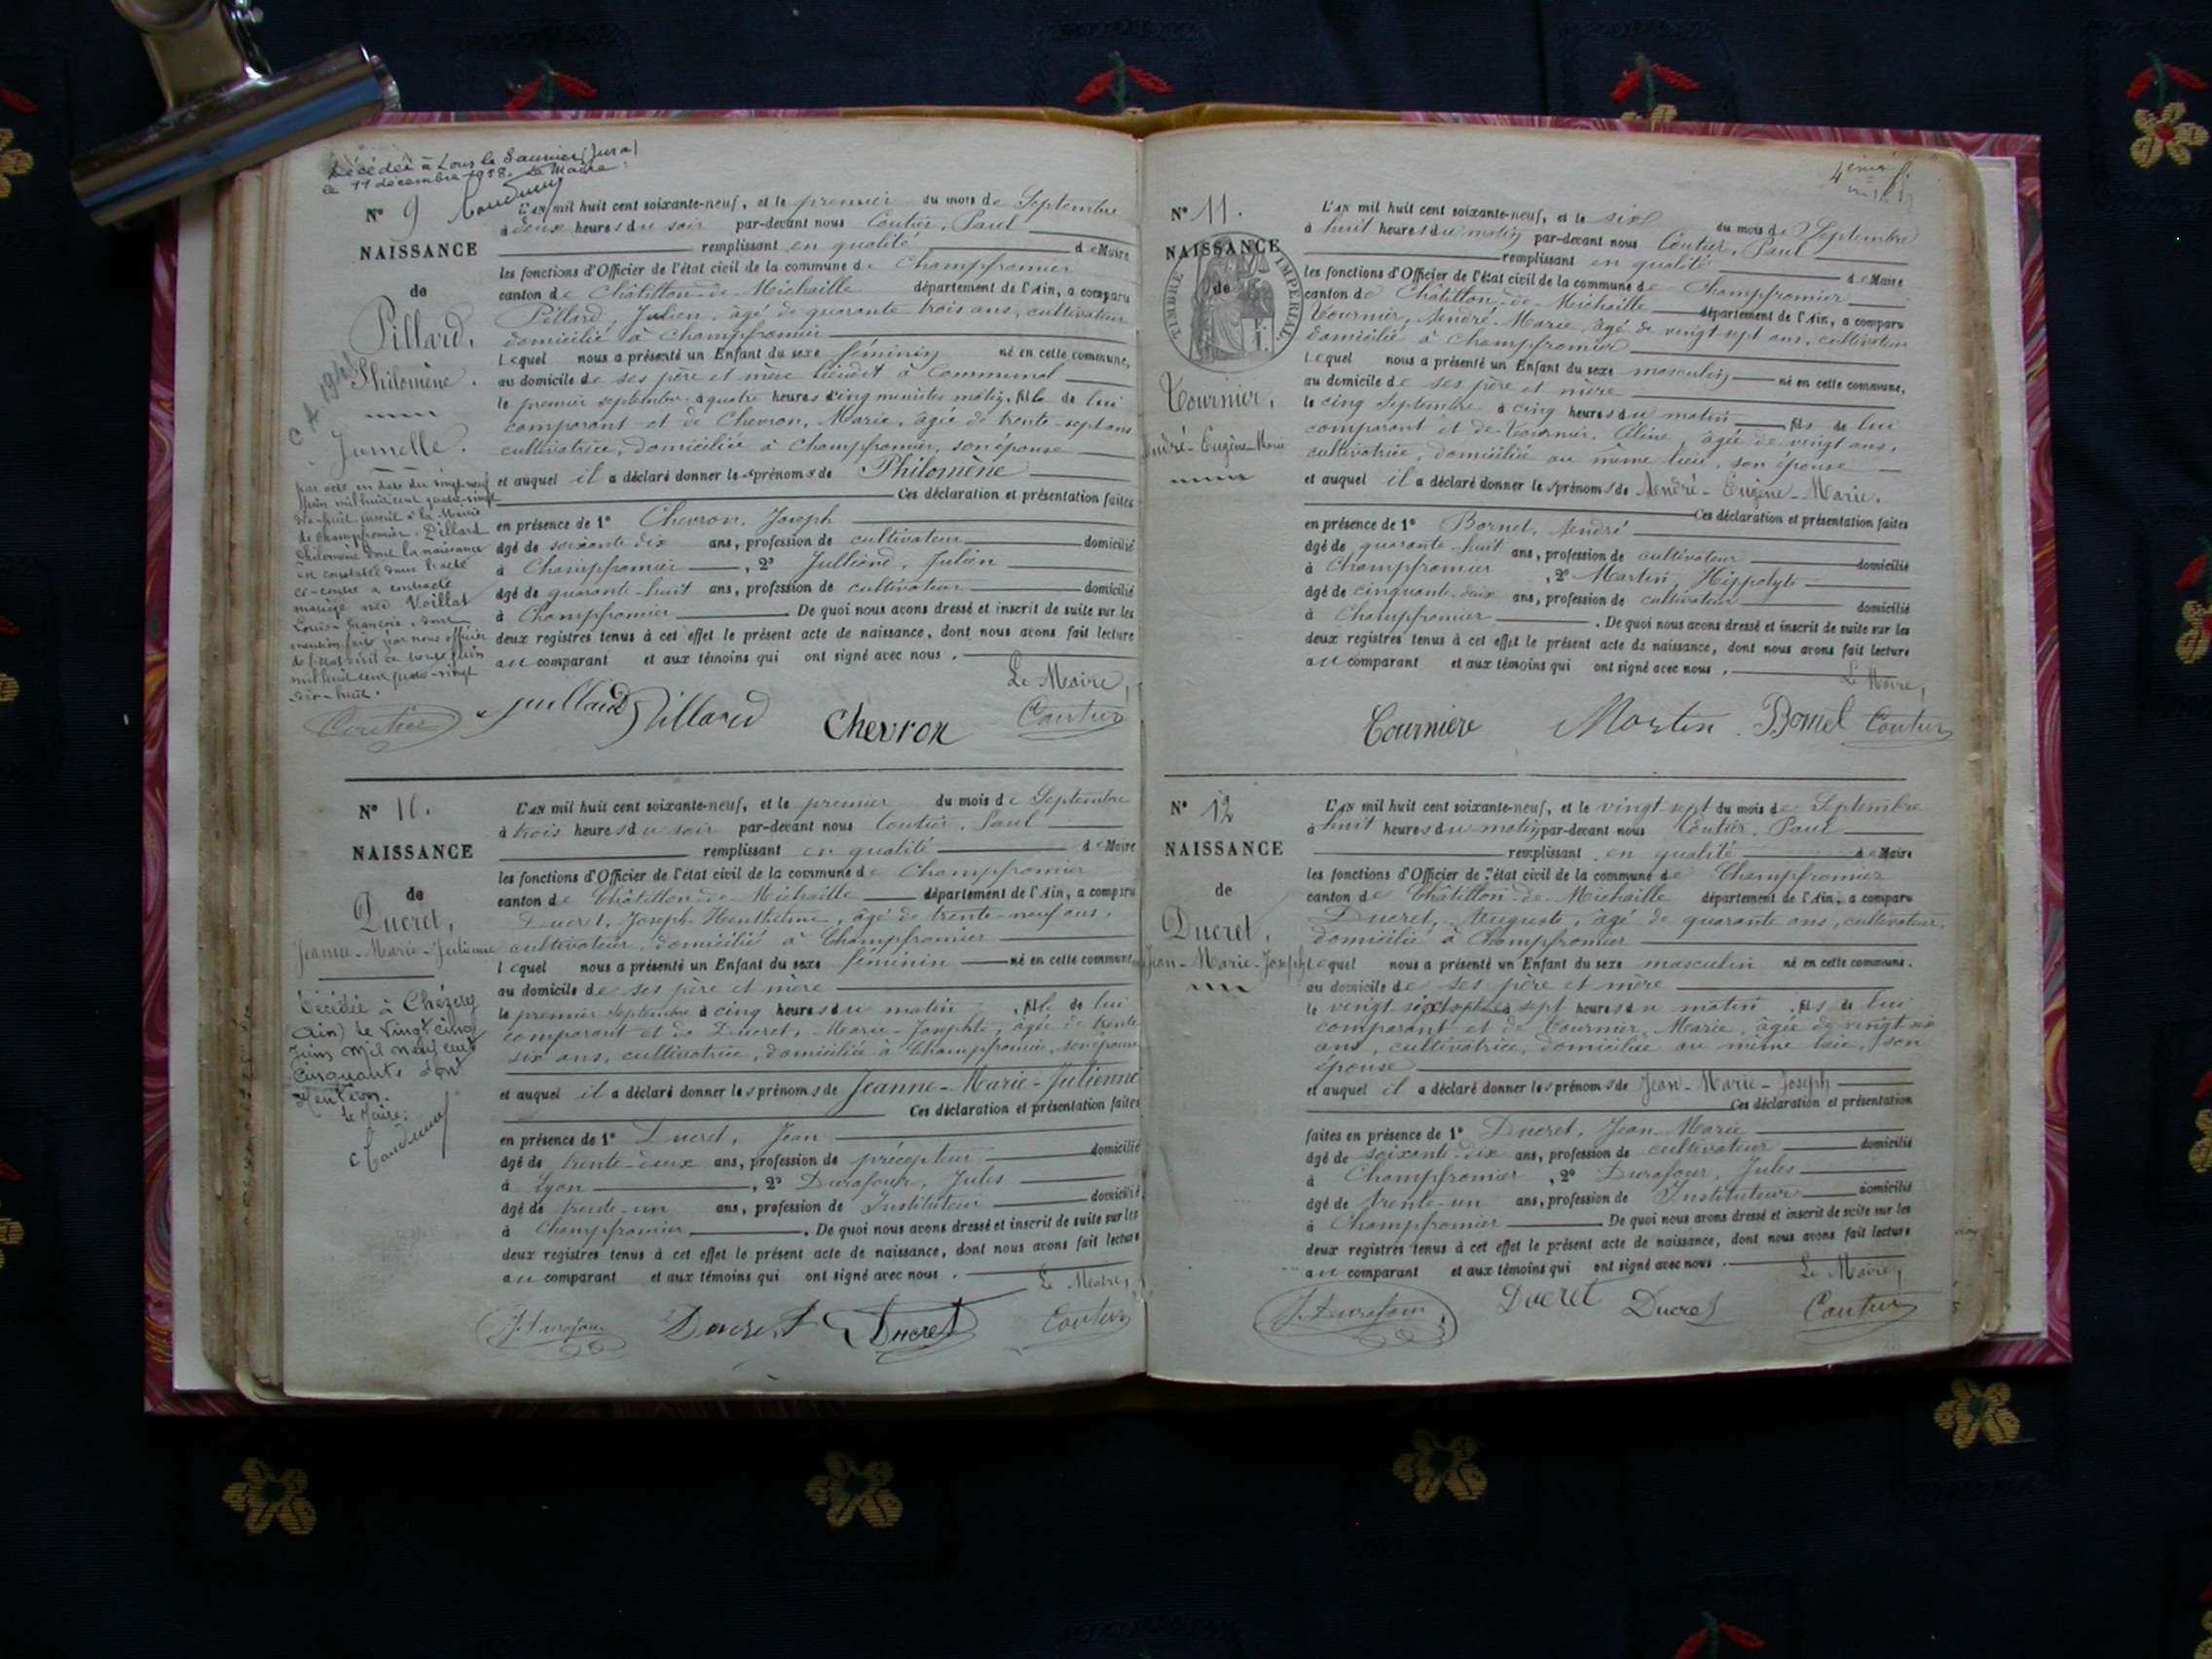 Décédée à Lons le Saunier (Jura)
le 11 décembre 1958. Le Maire:
N° 9
NAISSANCE
de
Pillard,
Philomène.
Jumelle.
par acte en date du vingt-neuf
Juin mil huit cent quatre-vingt
dix-huit inscrit à la Mairie
de Champfromier, Pillard
Philomène dont la naissance
est constatée dans l'acte
ci-contre a contracté
mariage avec Voillat
Louis-François, dont
mention faite par nous officier
de l'état civil ce trente Juin
mil huit cent quatre-vingt
dix-huit.
Coutier
L'AN mil huit cent soixante-neuf, et le premier du mois de Septembre
à deux heures du soir par-devant nous Coutier, Paul
remplissant en qualité de Maire
les fonctions d'Officier de l'état civil de la commune de Champfromier
canton de Châtillon-de-Michaille département de l'Ain, a comparu
Pillard, Julien, âgé de quarante-trois ans, cultivateur
domicilié à Champfromier
lequel nous a présenté un Enfant du sexe féminin né en cette commune,
au domicile de ses père et mère lieudit à Communal
le premier septembre à quatre heures cinq minutes matin, fille de lui
comparant et de Chevron, Marie, âgée de trente-sept ans
cultivatrice, domiciliée à Champfromier, son épouse
et auquel il a déclaré donner les prénoms de Philomène
Ces déclaration et présentation faites
en présence de 1° Chevron, Joseph
âgé de soixante dix ans, profession de cultivateur domicilié
à Champfromier, 2° Julliand, Julien
âgé de quarante-huit ans, profession de cultivateur domicilié
à Champfromier. De quoi nous avons dressé et inscrit de suite sur les
deux registres tenus à cet effet le présent acte de naissance, dont nous avons fait lecture
au comparant et aux témoins qui ont signé avec nous.
Le Maire,
Julliand Pillard Chevron Coutier
N° 10.
NAISSANCE
de
Ducret,
Jeanne-Marie-Julienne
Décédée à Chézery
(Ain) le Vingt cinq
Juin mil neuf cent
Cinquante dont
Mention.
le Maire:
L'AN mil huit cent soixante-neuf, et le premier du mois de Septembre
à trois heures du soir par-devant nous Coutier, Paul
remplissant en qualité de Maire
les fonctions d'Officier de l'état civil de la commune de Champfromier
canton de Châtillon-de-Michaille département de l'Ain, a comparu
Ducret, Joseph-Henthelme, âgé de trente-neuf ans,
cultivateur, domicilié à Champfromier
lequel nous a présenté un Enfant du sexe féminin né en cette commune
au domicile de ses père et mère
le premier Septembre à cinq heures du matin, fille de lui
comparant et de Ducret, Marie-Josephte, âgée de trente
six ans, cultivatrice, domiciliée à Champfromier, son épouse
et auquel il a déclaré donner les prénoms de Jeanne-Marie-Julienne
Ces déclaration et présentation faites
en présence de 1° Ducret, Jean
âgé de trente-deux ans, profession de précepteur domicilié
à Lyon, 2° Durafour, Jules
âgé de trente-un ans, profession de Instituteur domicilié
à Champfromier. De quoi nous avons dressé et inscrit de suite sur les
deux registres tenus à cet effet le présent acte de naissance, dont nous avons fait lecture
au comparant et aux témoins qui ont signé avec nous.
Le Maire,
J. Durafour Ducret Ducret Coutier
4ème f.
N° 11.
NAISSANCE
de
TIMBRE IMPERIAL
Tournier,
André-Eugène-Marie
L'AN mil huit cent soixante-neuf, et le six du mois de Septembre
à huit heures du matin par-devant nous Coutier, Paul
remplissant en qualité de Maire
les fonctions d'Officier de l'état civil de la commune de Champfromier
canton de Châtillon-de-Michaille département de l'Ain, a comparu
Tournier, André-Marie, âgé de vingt-sept ans, cultivateur
domicilié à Champfromier
lequel nous a présenté un Enfant du sexe masculin né en cette commune,
au domicile de ses père et mère
le cinq Septembre à cinq heures du matin, fils de lui
comparant et de Tournier, Céline, âgée de vingt ans,
cultivatrice, domiciliée au même lieu, son épouse
et auquel il a déclaré donner les prénoms de André-Eugène-Marie.
Ces déclaration et présentation faites
en présence de 1° Bornet, André
âgé de quarante-huit ans, profession de cultivateur domicilié
à Champfromier, 2° Martin, Hippolyte
âgé de cinquante-deux ans, profession de cultivateur domicilié
à Champfromier. De quoi nous avons dressé et inscrit de suite sur les
deux registres tenus à cet effet le présent acte de naissance, dont nous avons fait lecture
au comparant et aux témoins qui ont signé avec nous.
Le Maire,
Tournier Martin Bornet Coutier
N° 12
NAISSANCE
de
Ducret,
Jean-Marie-Joseph
L'AN mil huit cent soixante-neuf, et le vingt-sept du mois de Septembre
à huit heures du matin par-devant nous Coutier, Paul
remplissant en qualité de Maire
les fonctions d'Officier de l'état civil de la commune de Champfromier
canton de Châtillon-de-Michaille département de l'Ain, a comparu
Ducret, Auguste, âgé de quarante ans, cultivateur,
domicilié à Champfromier
lequel nous a présenté un Enfant du sexe masculin né en cette commune.
au domicile de ses père et mère
le vingt six septembre à sept heures du matin, fils de lui
comparant et de Tournier, Marie, âgée de vingt six
ans, cultivatrice, domiciliée au même lieu, son
épouse
et auquel il a déclaré donner les prénoms de Jean-Marie-Joseph
Ces déclaration et présentation
faites en présence de 1° Ducret, Jean-Marie
âgé de soixante-dix ans, profession de cultivateur domicilié
à Champfromier, 2° Durafour, Jules
âgé de trente-un ans, profession de Instituteur domicilié
à Champfromier. De quoi nous avons dressé et inscrit de suite sur les
deux registres tenus à cet effet le présent acte de naissance, dont nous avons fait lecture
au comparant et aux témoins qui ont signé avec nous.
Le Maire,
J. Durafour Ducret Ducret Coutier